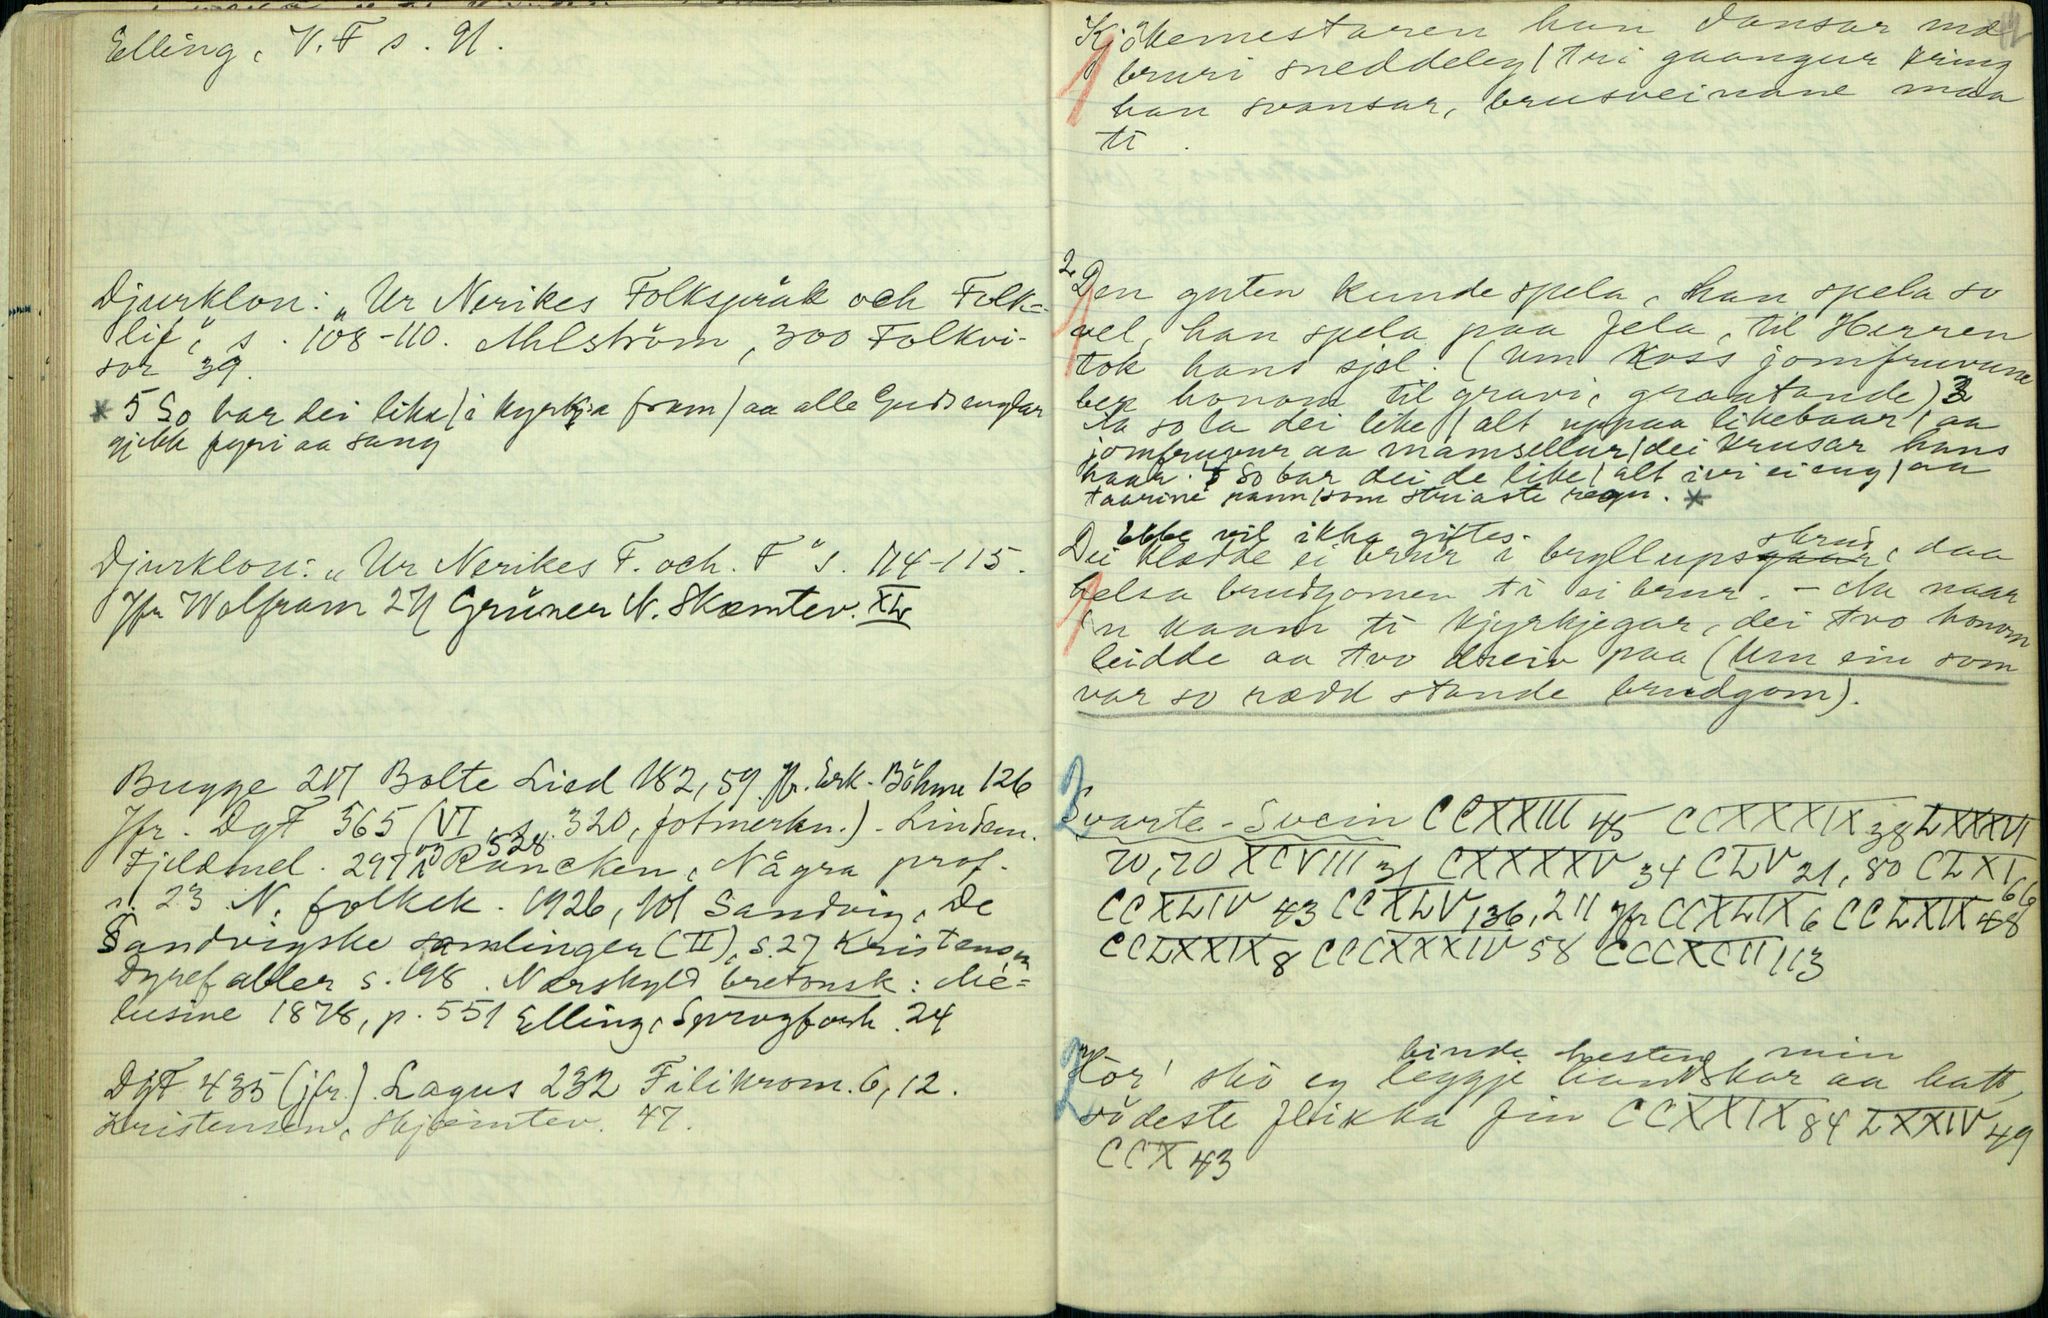 Elling, V.F s. 91.
Djurklou: „Ur Nerikes Folkspråk och Folk=
lif", s. 108-110. Ahlström, 300 Folkvi-
sor 39.
* 5 So bar dei like / i kyrkja fram / aa alle Gudsenglar
gjekk fyri aa sang
Djurklou: „Ur Nerikes F. och. F" s. 114-115.
Jfr Wolfram 271 Grüner N. Skæmtev. XLV
Bugge 217 Bolte Lied 182, 59 Jfr. Erk-Böhme 126
Jfr. DgF 565 (VI, s. 320, fotmerkn.). Lindem.
528
Fjeldmel. 297 Rancken, Några prof.
n. 23 N. folkek. 1926, 101 Sandvig, De
Sandvigske samlinger (II), s. 27 Kristensen
Dyrefabler s. 198. Nærskyld bretonsk: Mé=
lusine 1878, p. 551 Elling, Sprogforh. 24
DgF 435 (jfr.) Lagus 232 Filikrom. 6, 12.
Kristensen, Skjæmtev. 47.
Kjökemestaren han dansar mæ
bruri sneddeleg / tri gaangur kring
han svansar, brusveinane maa
ti.
2 Den guten kunde spela, han spela so
vel, han spela paa fela, til Herren
tok hans sjel. (Um koss jomfruvune
ber honom til gravi, graatande) 3
Aa so la dei like / alt uppaa likebaar / aa
jomfruvur aa mamsellur / dei krusar hans
haar. 4 So bar dei de like / alt ivi ei eng / aa
taarine rann / som striaste regn. *
Ebbe vil ikka giftes.
Dei kledde ei brur i bryllupsgaar, daa
skrud
helsa brudgomen ti ei brur. - Aa naar
'n kaam ti kjyrkjegar, dei tvo honom
leidde aa tvo dreiv paa (Um ein som
var so rædd stande brudgom).
2
Svarte-Svein CCXXIII 45 CCXXXIX 38 LXXXVI
70, 70 XCVIII 31 CXXXXV 34 CLV 21, 80 CLXI 66
CCXLIV 43 CCXLV 136, 211 Jfr CCXLIX 6 CCLXIX 48
CCLXXIX 8 CCCXXXIV 58 CCCXCII 113
2
binde hesten min
Hör! skò eg leggje handskar aa hatt,
södeste flikka fin CCXXIX 84 LXXIV 49
CCX 43